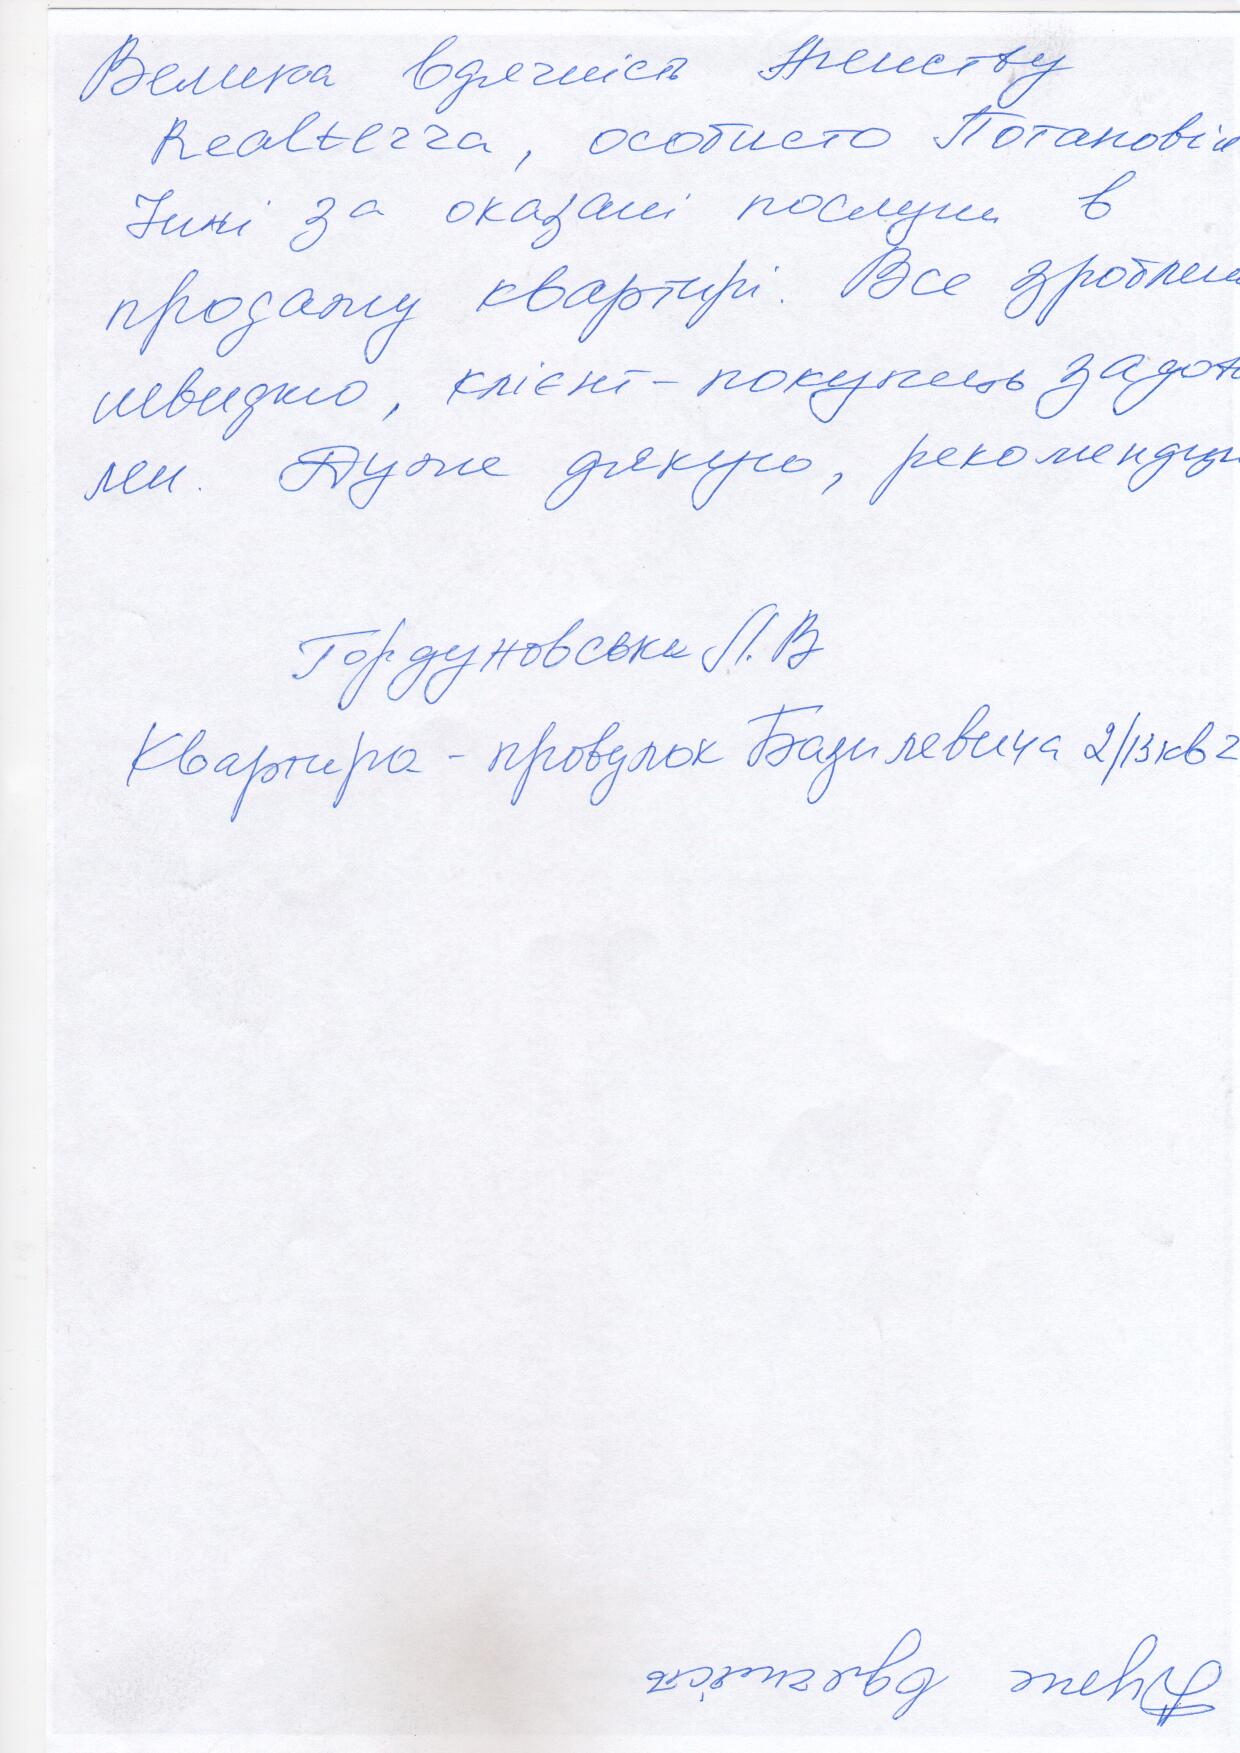 Велика вдячність Агенству
Realterra, особисто Потаповій
Інні за оказані послуги в
продажу квартирі. Все зроблен
швидко, клієнт-покупець задо
лен. Дуже дякую, рекомендую
Гордуновська Л.В
Квартира - провулок Базилевича 2/13 кв 2
Дуже вдячність